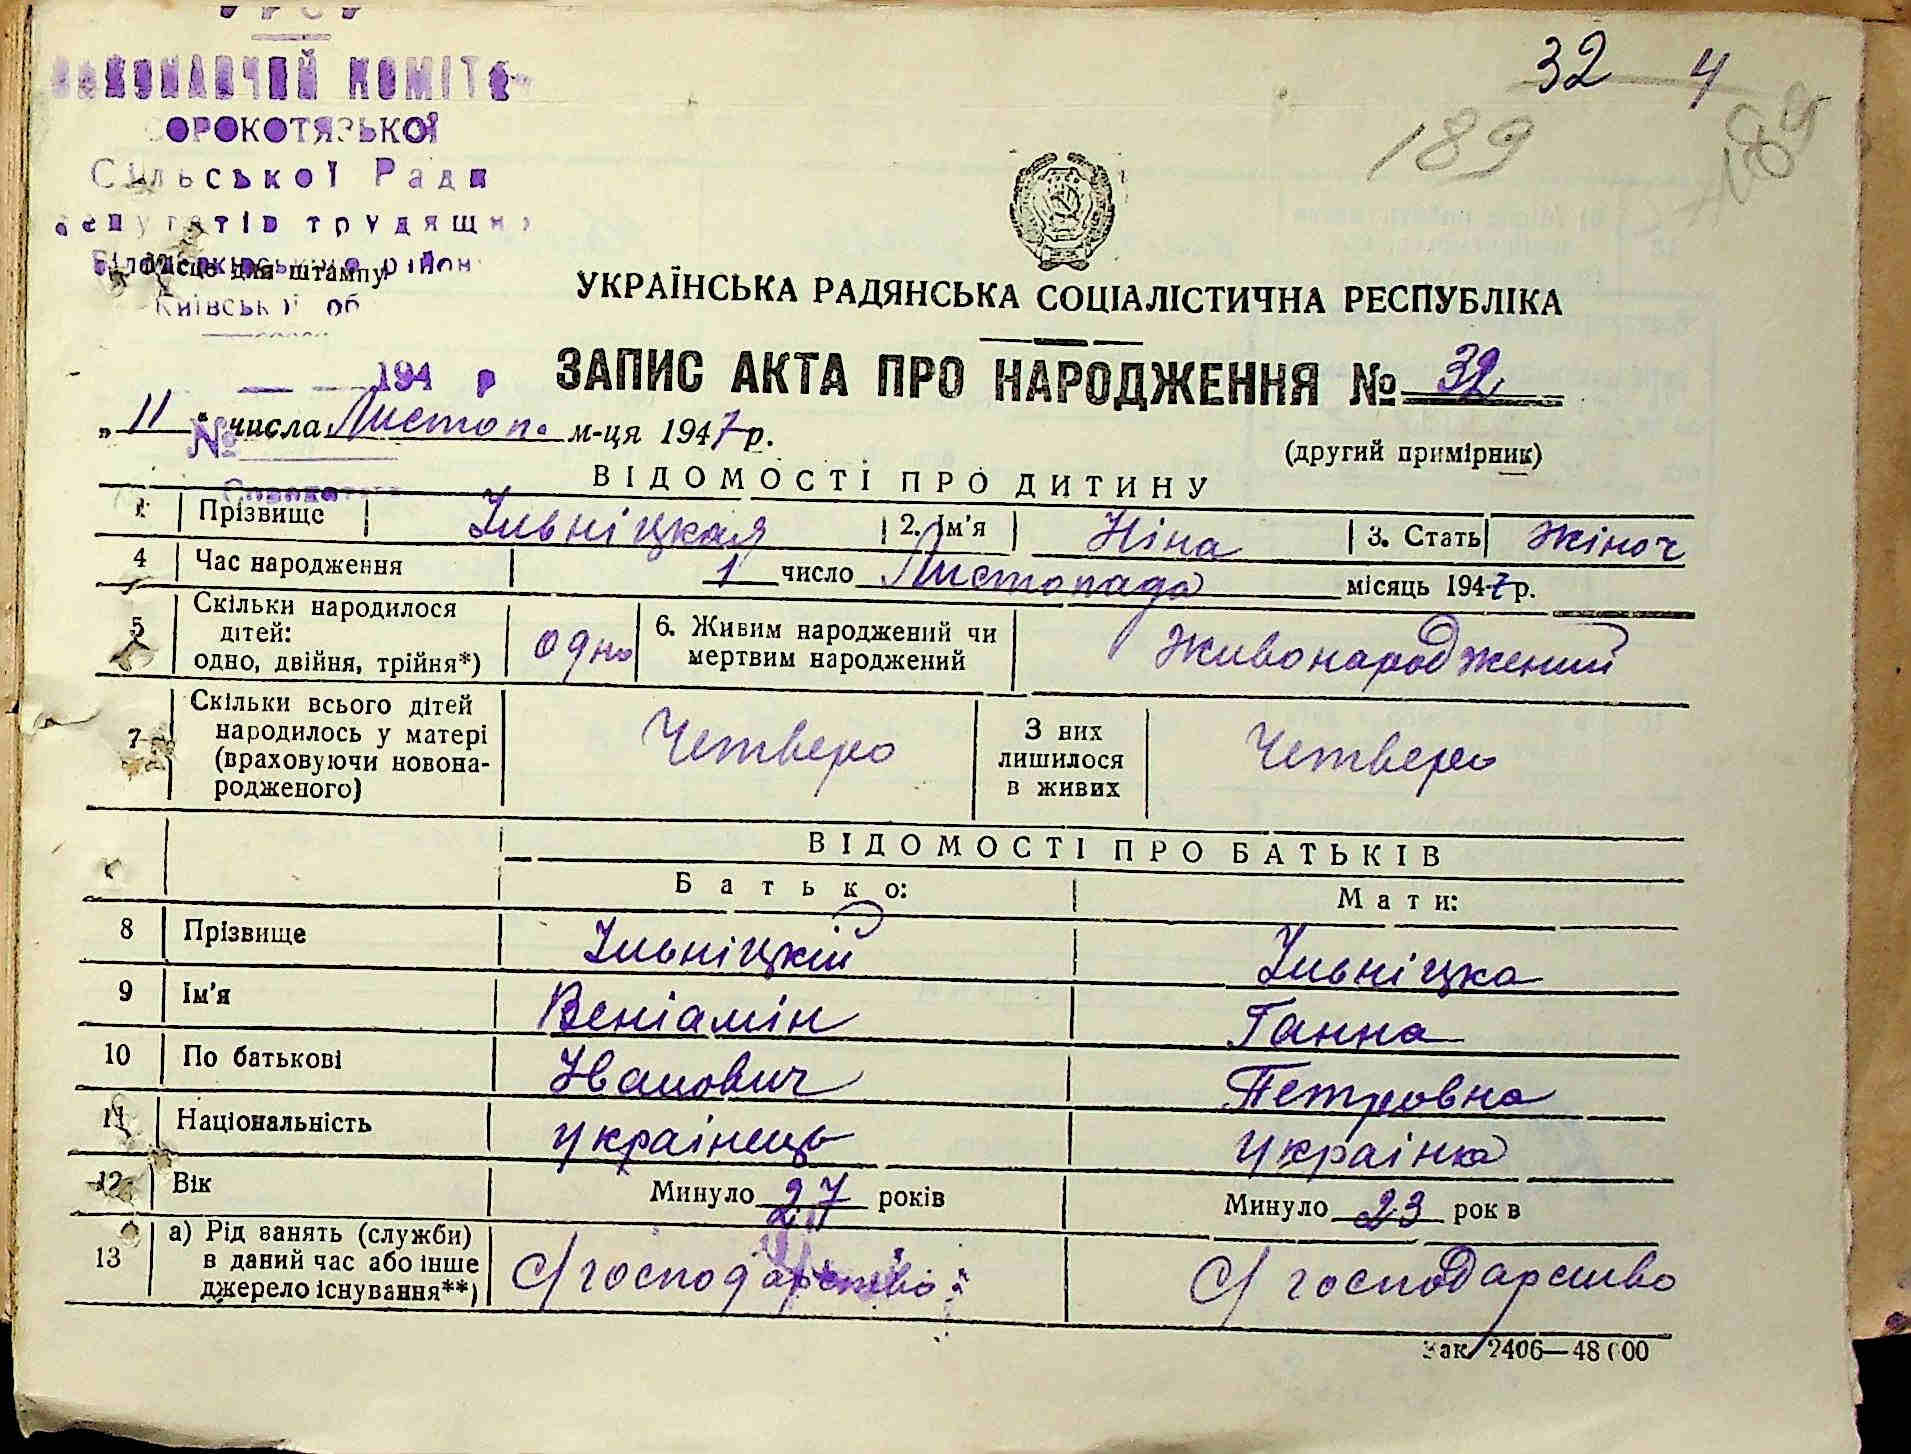 УРСР
ВИКОНАВЧИЙ КОМІТЕТ
СОРОКОТЯЗЬКОЇ
Сільської Ради
депутатів трудящих
Білоцерківського району
Київської обл
Місце для штампу
194 р
№
32 4
189
189
УКРАЇНСЬКА РАДЯНСЬКА СОЦІАЛІСТИЧНА РЕСПУБЛІКА
ЗАПИС АКТА ПРО НАРОДЖЕННЯ № 32
„ 11 " числа Листоп. м-ця 1947 р.
(другий примірник)
ВІДОМОСТІ ПРО ДИТИНУ
1 Прізвище Ільніцкая 2. Ім'я Ніна 3. Стать Жіноч
4 Час народження 1 число Листопада місяць 1947 р.
5 Скільки народилося дітей: одно, двійня, трійня*) одно 6. Живим народжений чи мертвим народжений Живонароджений
7 Скільки всього дітей народилось у матері (враховуючи новонародженого) Четверо З них лишилося в живих Четверо
ВІДОМОСТІ ПРО БАТЬКІВ
Батько: Мати:
8 Прізвище Ільніцкій Ільніцка
9 Ім'я Веніамін Ганна
10 По батькові Іванович Петровна
11 Національність українець українка
12 Вік Минуло 27 років Минуло 23 рок в
13 а) Рід занять (служби) в даний час або інше джерело існування**) С/господарство С/господарство
Зак. 2406—48000